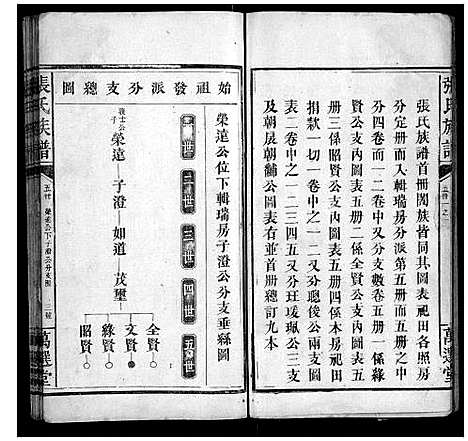 張氏族譜
五卷一之
萬選堂
張氏族譜首冊閱族皆同其圖表祀田各照房
分定冊而入輯瑞房分派第五冊而五冊中之
分四卷而一二卷又分支數卷五冊一係
賢公支內圖表五冊二係全賢公支內圖表五
冊三係昭賢公支內圖表五冊四係本房祀田
捐款一切一卷中之一二又分聰俊公兩支圖
表二卷中之一二三四五又分班瑗珮公三支
及朝展朝黼公圖表七冊並首冊總訂九本
始祖發派分支總圖
榮遠公位下輯瑞房子澄公分支垂絲圖
一世 二世 三世 四世 五世
義士公子 榮遠 子澄 如道 茂璽
全賢○
文賢●
綠賢○
昭賢○
張氏族譜
五卷 榮遠公下子澄公分支圖 二號
萬選堂